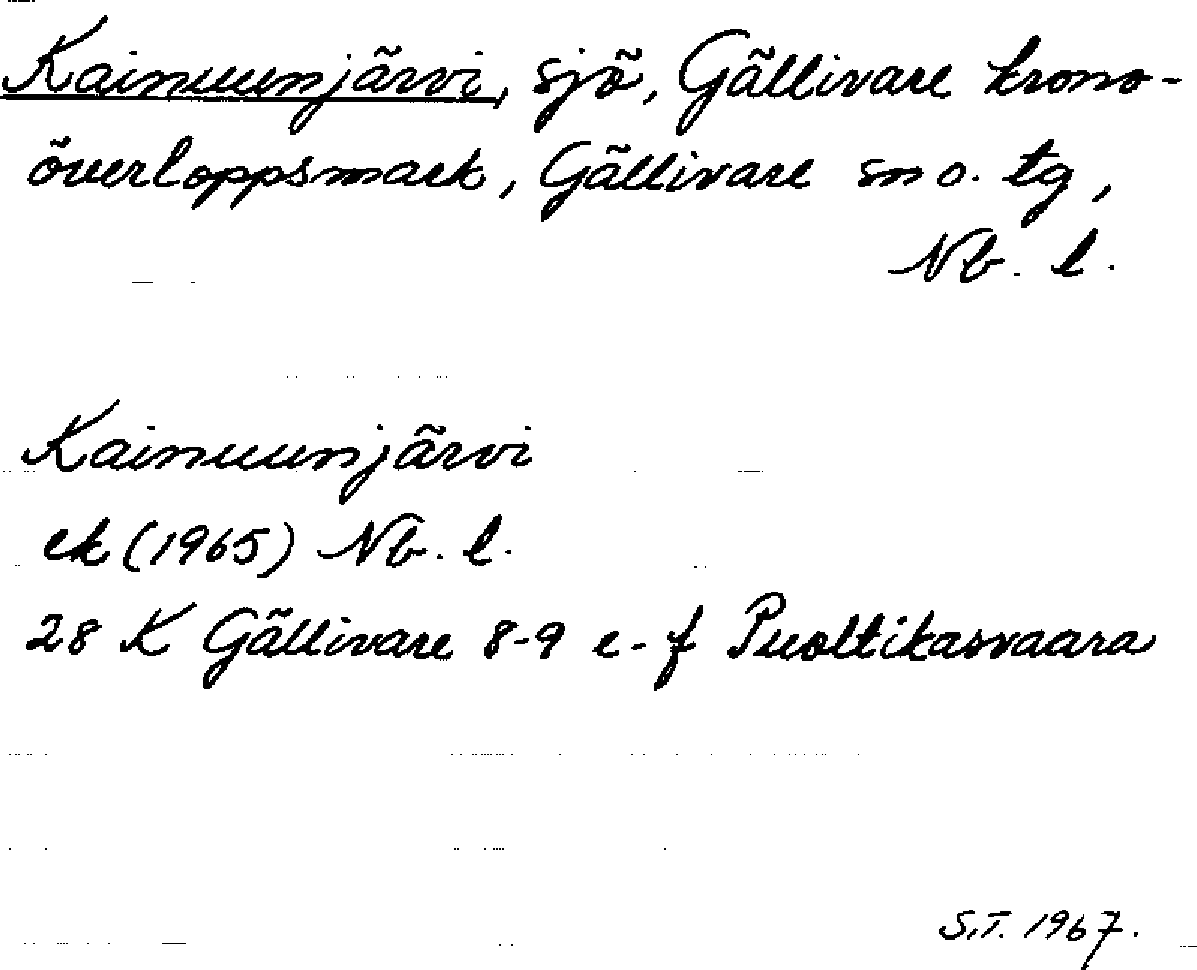 Kainuunjärvi, sjö, Gällivare krono-
överloppsmark, Gällivare sn o. tg,
Nb. l.
Kainuunjärvi
ek (1965) Nb. l.
28 K Gällivare 8-9 e-f Puoltikasvaara
S.T. 1967.